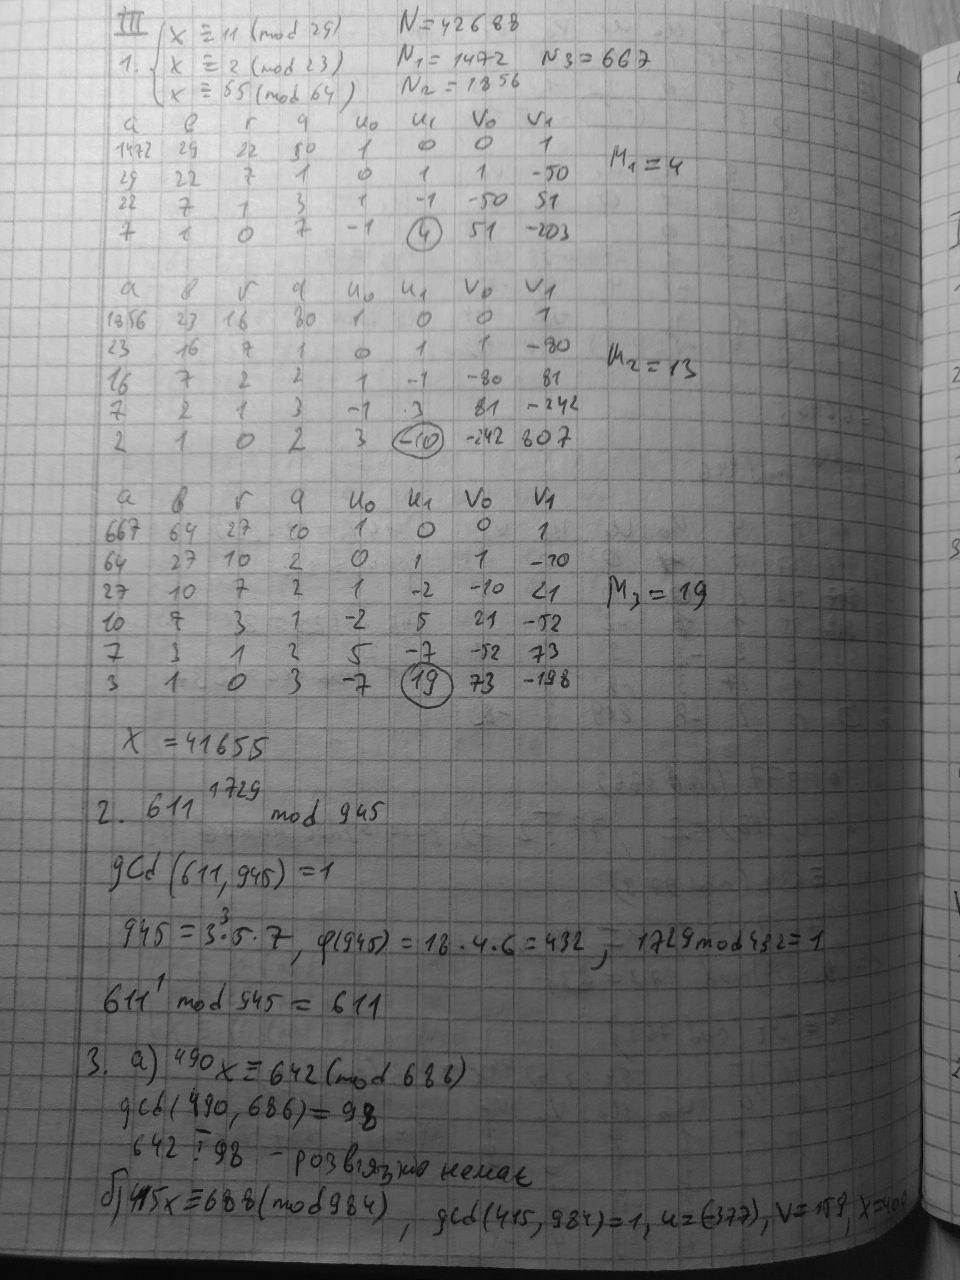 III x ≡ 11 (mod 29) N = 42688
1. x ≡ 2 (mod 23) N1 = 1472 N3 = 667
x ≡ 55 (mod 64) N2 = 1856
a b r q u0 u1 v0 v1
1472 29 22 50 1 0 0 1
29 22 7 1 0 1 1 -50 M1 = 4
22 7 1 3 1 -1 -50 51
7 1 0 7 -1 4 51 -203
a b r q u0 u1 v0 v1
1856 23 16 80 1 0 0 1
23 16 7 1 0 1 1 -80 M2 = 13
16 7 2 2 1 -1 -80 81
7 2 1 3 -1 3 81 -242
2 1 0 2 3 -10 -242 807
a b r q u0 u1 v0 v1
667 64 27 10 1 0 0 1
64 27 10 2 0 1 1 -10
27 10 7 2 1 -2 -10 21 M3 = 19
10 7 3 1 -2 5 21 -52
7 3 1 2 5 -7 -52 73
3 1 0 3 -7 19 73 -198
x = 41655
2. 611^1729 mod 945
gcd(611, 945) = 1
945 = 3^3·5·7, φ(945) = 18·4·6 = 432, 1729 mod 432 = 1
611^1 mod 945 = 611
3. а) 490x ≡ 642 (mod 686)
gcd(490, 686) = 98
642 ⋮̅ 98 - розв'язко немає
б) 415x ≡ 688 (mod 984), gcd(415, 984) = 1, u = (-377), v = 159,